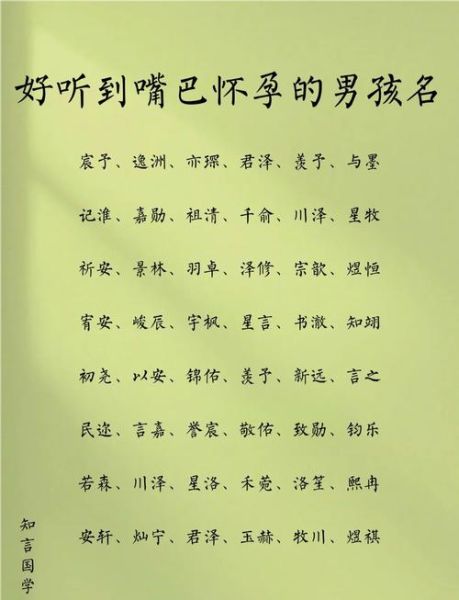 好听到嘴巴怀孕的男孩名
宸予、逸洲、亦琛、君泽、羡予、与墨
记淮、嘉勋、祖清、千俞、川泽、星牧
祈安、景林、羽卓、泽修、宗歆、煜恒
宥安、峻辰、宇枫、星言、书澈、知翊
初尧、以安、锦佑、羡予、新远、言之
民迩、言嘉、誉宸、敬佑、致勋、钧乐
若森、川泽、星洛、禾菀、洛笙、熙冉
安轩、灿宁、君泽、玉赫、牧川、煜祺
知言国学